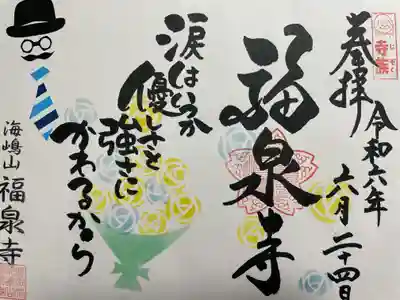 奉拝
令和六年
六月二十四日
福泉寺
涙はいつか
優しさと
強さに
かわるから
海嶋山
福泉寺